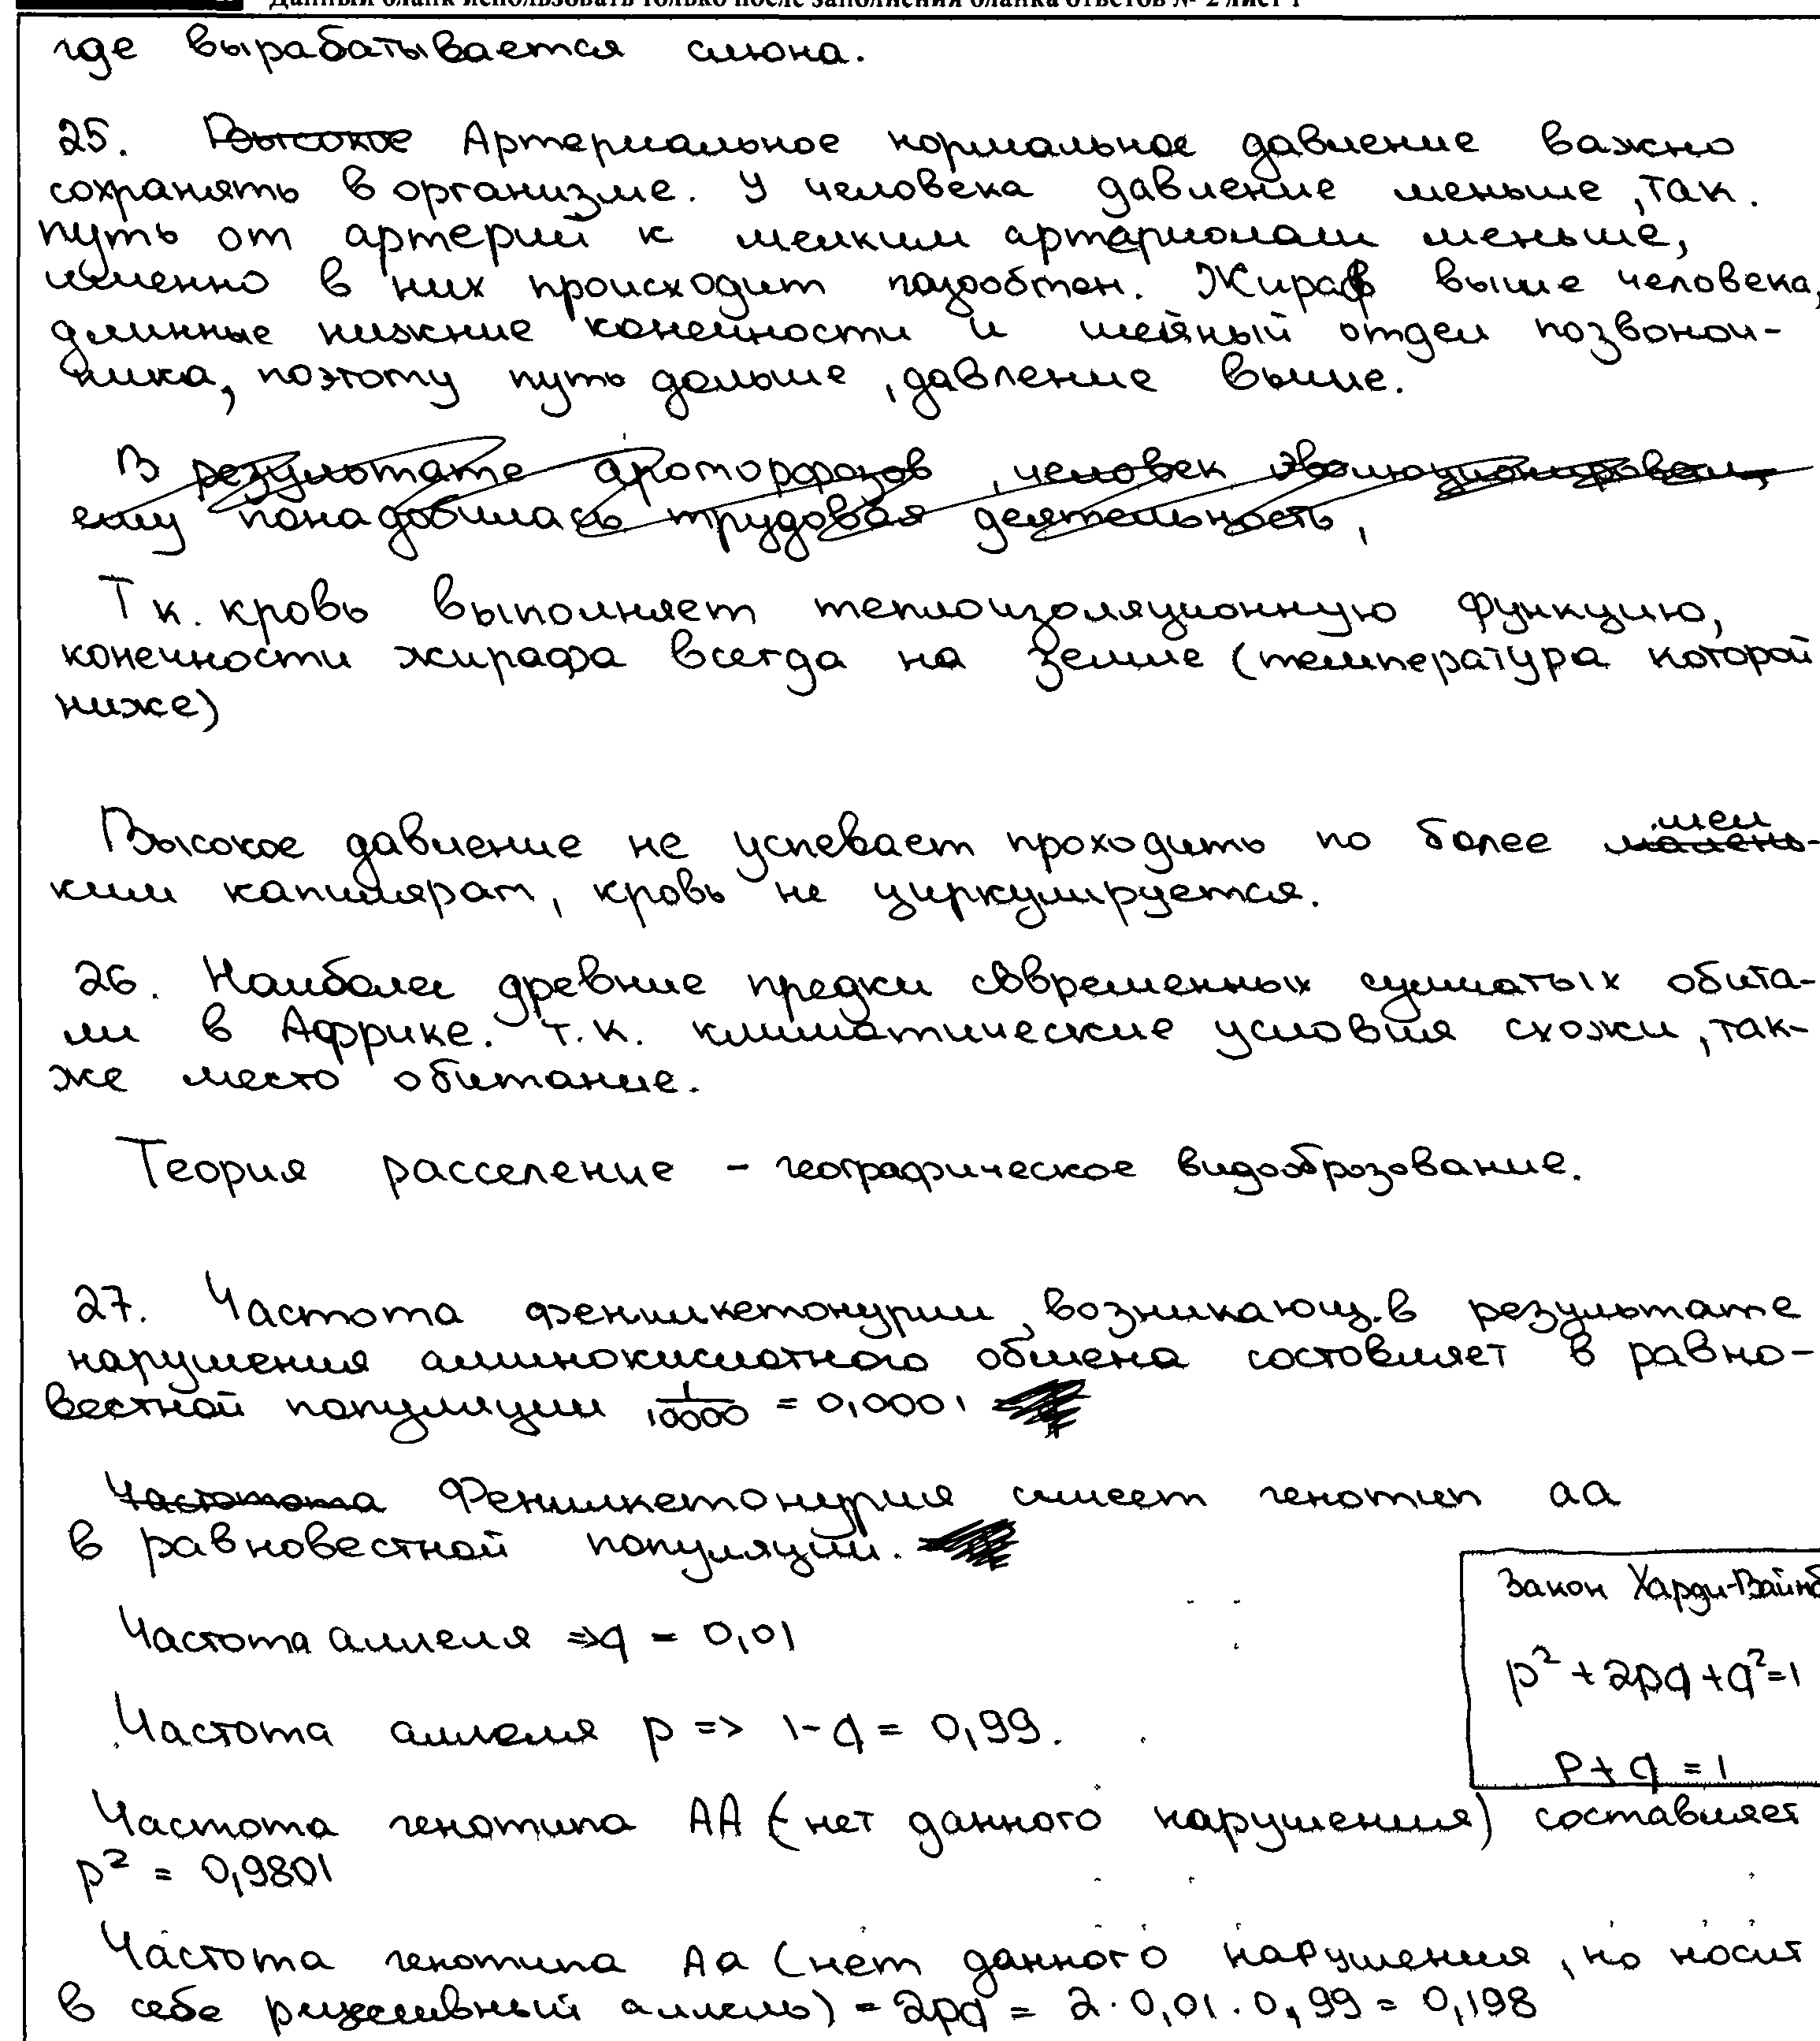 Данный бланк использовать только после заполнения бланка ответов № 2 лист 1
где вырабатывается слюна.
25. Высокое Артериальное нормальное давление важно
сохранять в организме. У человека давление меньше, так.
путь от артерий к мелким артериолам меньше,
именно в них происходит газообмен. Жираф выше человека,
длинные нижние конечности и шейный отдел позвоноч-
ника, поэтому путь дольше, давление выше.
В результате ароморфозов, человек эволюционировал,
ему понадобилась трудовая деятельность,
Т к. кровь выполняет теплоизоляционную функцию,
конечности жирафа всегда на земле (температура которой
ниже)
Высокое давление не успевает проходить по более мел
маленьким капилярам, кровь не циркулируется.
26. Наиболее древние предки современных сумчатых обита-
ли в Африке. т.к. климатические условия схожи, так-
же место обитание.
Теория расселение - географическое видообрзование.
27. Частота фенилкетонурии, возникающ. в результате
нарушения аминокислотного обмена состовляет в равно-
вестной популяции 1/10000 = 0,0001
Частотота Фенилкетонурия имеет генотип аа
в равновестной популяции.
Закон Харди-Вайнб
p² + 2pq + q² = 1
p + q = 1
Частота аллеля => q = 0,01
Частота аллеля p => 1 - q = 0,99.
Частота генотипа АА (нет данного нарушения) составляет
p² = 0,9801
Частота генотипа Аа (нет данного нарушения, но носит
в себе рецесивный аллель) = 2pq = 2 · 0,01 · 0,99 = 0,198